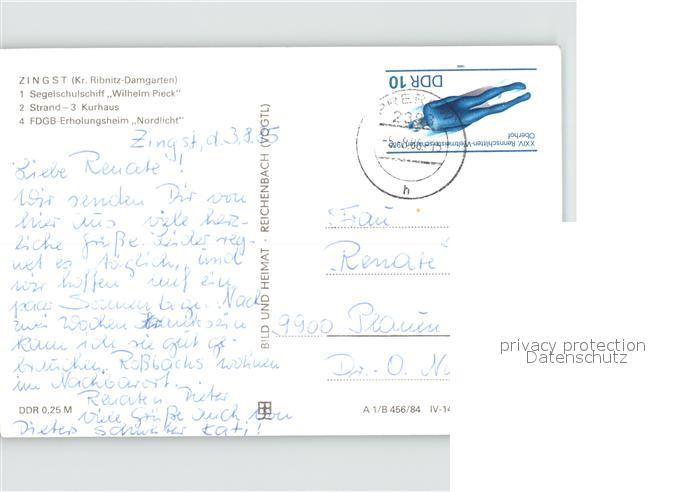 ZINGST (Kr. Ribnitz-Damgarten)
1 Segelschulschiff „Wilhelm Pieck"
2 Strand – 3 Kurhaus
4 FDGB-Erholungsheim „Nordlicht"
Zingst, d. 3.8.85
Liebe Renate!
Wir senden Dir von
hier aus viele herz-
liche Grüße. Leider reg-
net es täglich, und
wir hoffen auf ein
paar Sonnentage. Nach
zwei Wochen Kranksein
kann ich sie gut ge-
brauchen. Roßbachs wohnen
im Nachbarort.
Renate Dieter
viele Grüße auch von
Dieters Schwester Kati!
DDR 0,25 M
BILD UND HEIMAT REICHENBACH (VOGTL)
A 1/B 456/84 IV-14
DDR 10
XXIV. Rennschlitten-Weltmeisterschaften
Oberhof
Frau
Renate
9900 Plauen
Dr.-O. Nu
privacy protection
Datenschutz